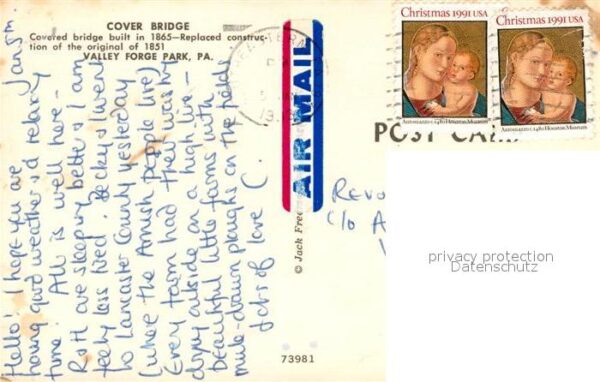 COVER BRIDGE
Covered bridge built in 1865—Replaced construc-
tion of the original of 1851
VALLEY FORGE PARK, PA.
Jan 5th.
Hello! I hope you are
having good weather and relaxing
time! All is well here -
Ruth are sleeping better & I am
feeling less tired. Becky & I went
to Lancaster County yesterday
(where the Amish people live)
Every farm had their washing
drying outside on a high line -
beautiful little farms with
mule-drawn ploughs on the fields
Lots of love C.
© Jack Free
73981
AIR MAIL
Christmas 1991 USA
Antoniazzo, c.1480 Houston Museum
Christmas 1991 USA
Antoniazzo, c.1480 Houston Museum
POST CARD
Revd
c/o A
privacy protection
Datenschutz